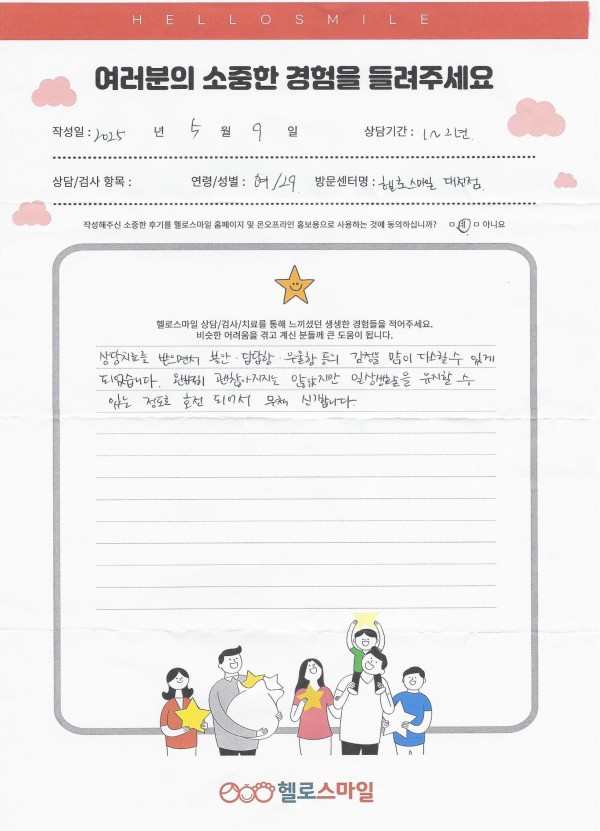 HELLOSMILE
여러분의 소중한 경험을 들려주세요
작성일 : 2025 년 5 월 9 일 상담기간 : 1~2년.
상담/검사 항목 : 연령/성별 : 여/29 방문센터명 : 헬로스마일 대전점.
작성해주신 소중한 후기를 헬로스마일 홈페이지 및 온오프라인 홍보용으로 사용하는 것에 동의하십니까? □ 예 □ 아니요
헬로스마일 상담/검사/치료를 통해 느끼셨던 생생한 경험들을 적어주세요.
비슷한 어려움을 겪고 계신 분들께 큰 도움이 됩니다.
상담치료를 받으면서 불안·답답함·우울함 등의 감정을 많이 다스릴 수 있게
되었습니다. 완벽히 괜찮아지지는 않았지만 일상생활을 유지할 수
있는 정도로 호전 되어서 무척 신기합니다.
헬로스마일